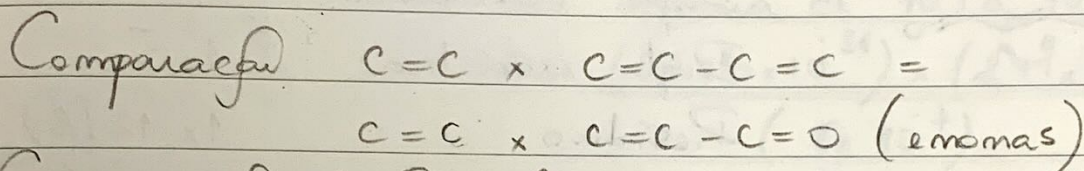 Comparação C = C × C = C - C = C =
C = C × C = C - C = O (enonas)